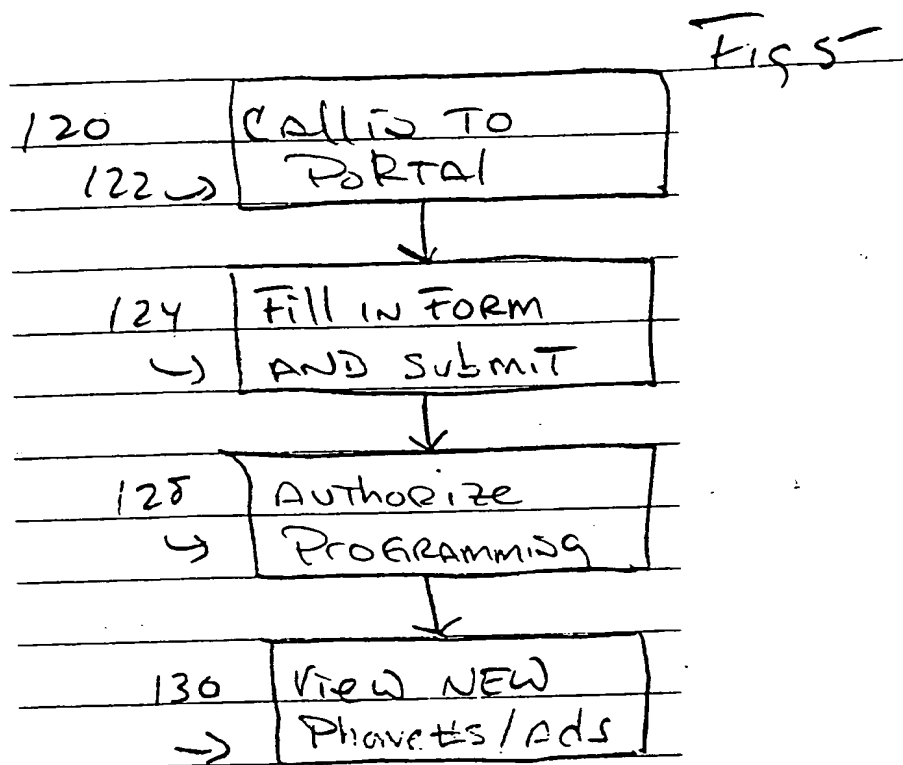 Fig 5
120
CALL IN TO
122
PORTAL
124
Fill IN FORM
AND SUBMIT
128
AUTHORIZE
PROGRAMMING
130
VIEW NEW
Phone #s / Ads